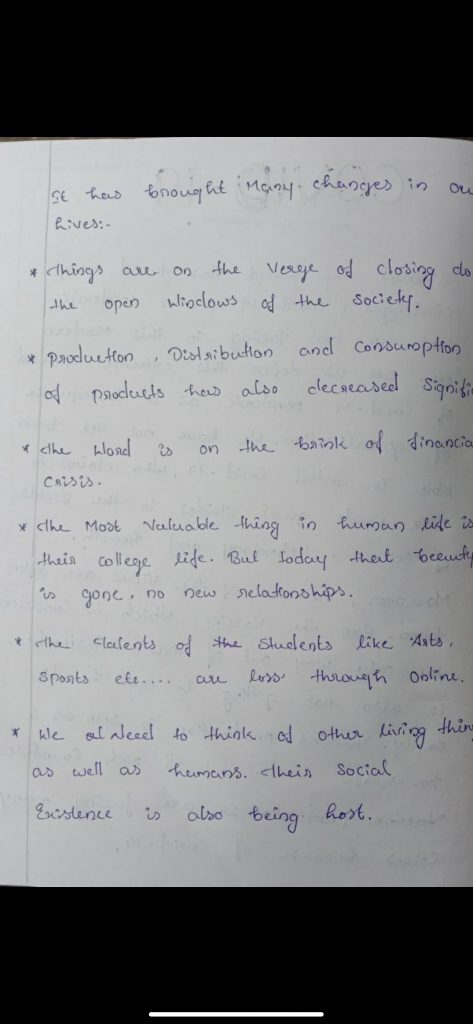 It has brought Many changes in ou
Lives:-
* Things are on the Verge of closing do
the open Windows of the Society.
* production, Distribution and consumption
of products has also decreased Signifi
* The Word is on the brink of financia
Crisis.
* The Most Valuable thing in human life is
their college life. But Today that beauty
is gone, no new relationships.
* The Talents of the Students like Arts,
Sports etc.... are loss through Online.
* We al Need to think of other living thin
as well as humans. Their Social
Existence is also being host.